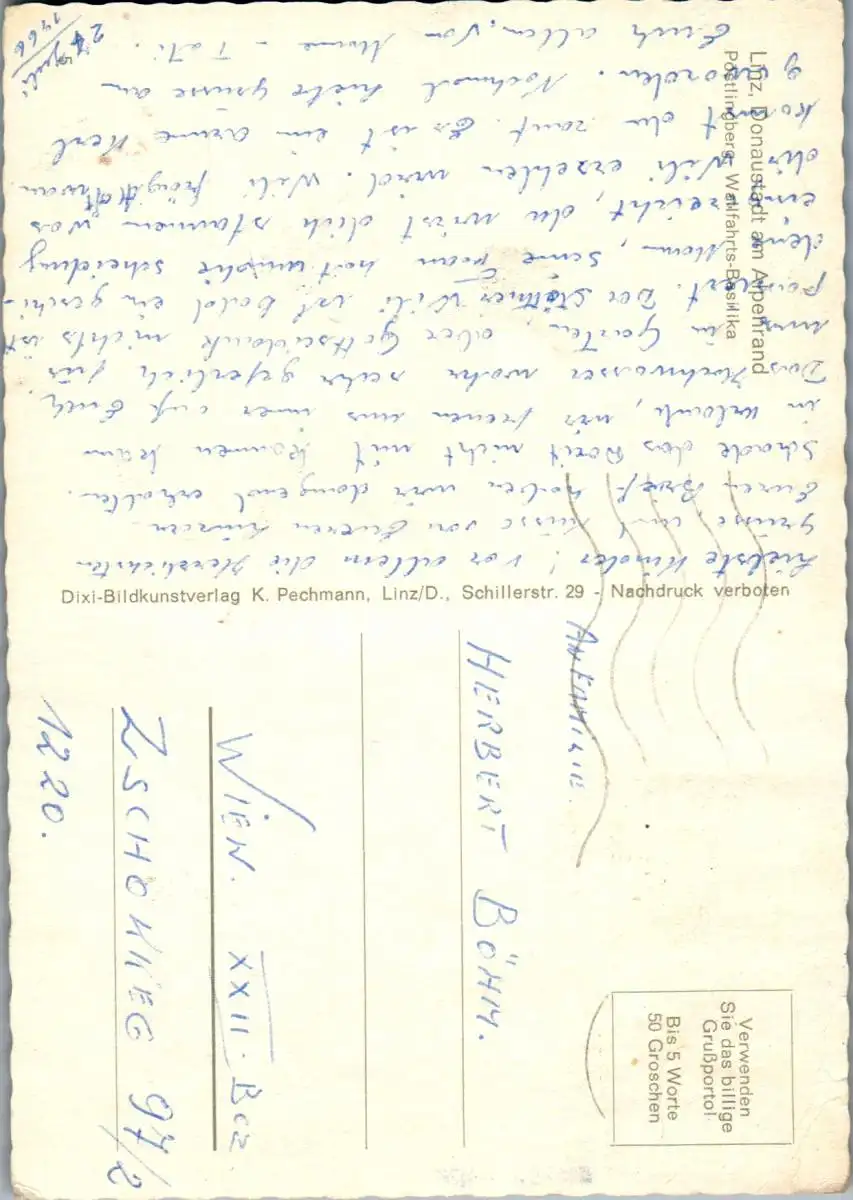 Linz, Donaustadt am Alpenrand
Pöstlingberg, Wallfahrts-Basilika
27 Juli
1966
Liebste Kinder! vor allem die Herzlichsten
grüsse und küsse von Eueren
Euren Brief haben wir dangend erhalten.
Schade das Dorit nicht mit komen kan
in urlaub, wir freuen uns imer auf Euch.
Das Hochwasser wahr sehr geferlich für
uns in Garten, aber Gottseidank nichts ist
pasiert. Der Wili ist bald ein geschi-
dener Mann, seine Frau hat um die scheidung
eingereicht, du wirst dich staunen was
dir Wili erzehlen wird. Wili
komt du rauf. Es ist ein arme Kerl
geworden. Nochmal liebe grüsse an
Euch allen, von Mame - Tati.
Dixi-Bildkunstverlag K. Pechmann, Linz/D., Schillerstr. 29 - Nachdruck verboten
Verwenden
Sie das billige
Grußporto!
Bis 5 Worte
50 Groschen
AN FAMILIE
HERBERT BÖHM.
WIEN. XXII. BEZ
ZSCHOKKEG 97/2
1220.